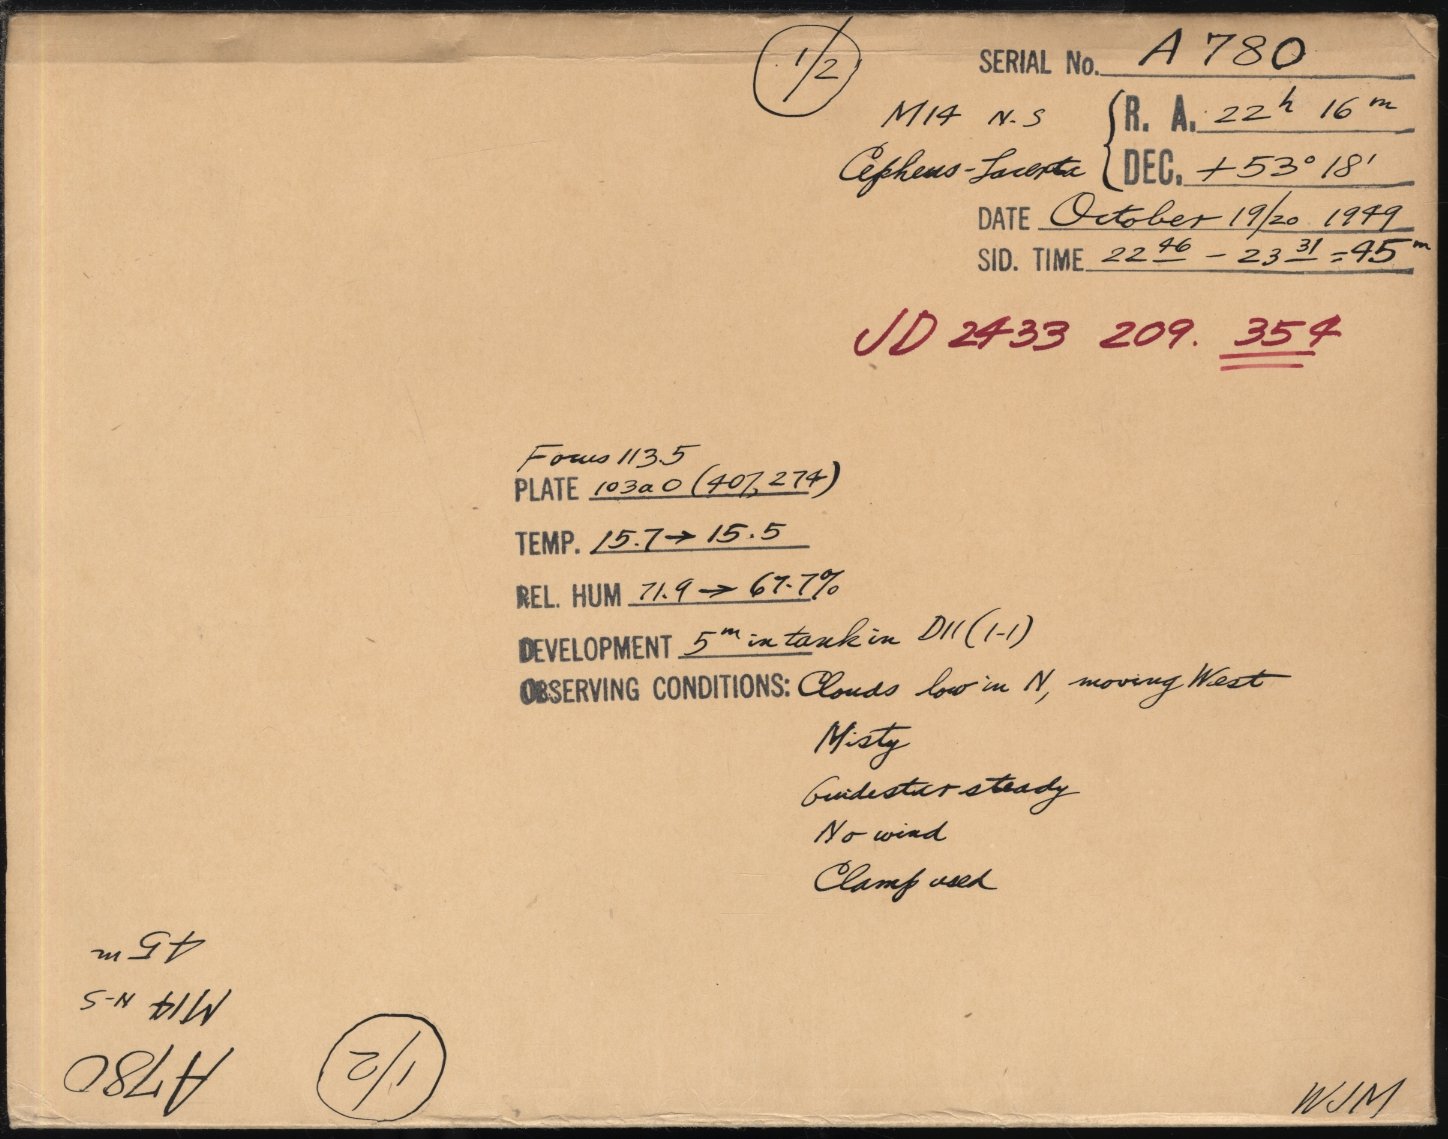 1/2
SERIAL No. A 780
M14 N-S
Cepheus-Lacerta
R. A. 22h 16m
DEC. +53° 18'
DATE October 19/20 1949
SID. TIME 22 46 - 23 31 = 45m
JD 2433 209. 354
Focus 113.5
PLATE 103a O (407, 274)
TEMP. 15.7 → 15.5
REL. HUM 71.9 → 67.7%
DEVELOPMENT 5m in tank in D11 (1-1)
OBSERVING CONDITIONS: Clouds low in N, moving West
Misty
Guidestar steady
No wind
Clamp used
1/2
A780
M14 N-S
45m
WJM